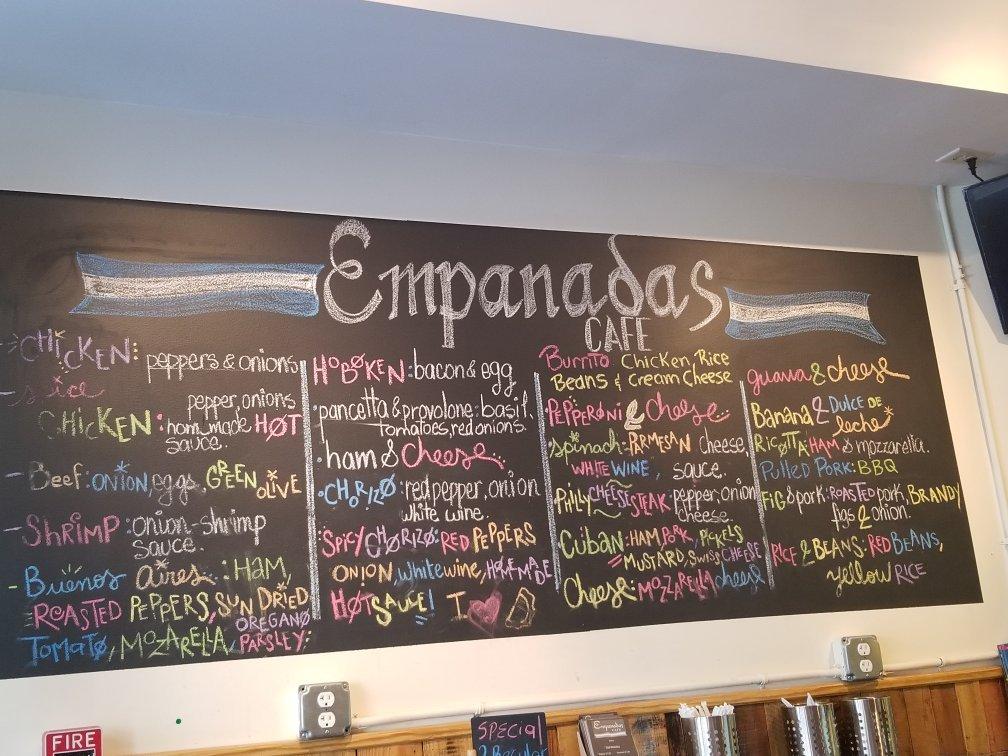 Empanadas
CAFE
CHICKEN: peppers & onions
Spice
CHICKEN: pepper, onions
hom made HOT
sauce.
Beef: ONION, eggs, GREEN
OLIVE
SHRIMP: onion-shrimp
sauce.
Buenos aires: HAM,
ROASTED PEPPERS, SUN DRIED
OREGANO
TOMATO, MOZARELLA, PARSLEY
HOBOKEN: bacon & egg
pancetta & provolone: basil,
tomatoes, red onions.
ham & cheese
CHORIZO: red pepper, onion
white wine.
SPICY CHORIZO: RED PEPPERS
ONION, white wine, HOMEMADE
HOT SAUCE! I
BURRITO Chicken, Rice
Beans & Cream Cheese
PEPPERONI & Cheese
spinach: PARMESAN cheese,
WHITE WINE, sauce.
PHILLY CHEESESTEAK: pepper, onion
cheese.
Cuban: HAM PORK, PICKELS
MUSTARD, SWISS CHEESE
Cheese: MOZZARELLA cheese
guava & cheese
Banana & DULCE DE
leche
RICOTTA: HAM & mozzarella.
Pulled Pork: BBQ
FIG & pork: ROASTED pork, BRANDY
figs & onion.
RICE & BEANS: RED BEANS,
yellow RICE
FIRE
SPECIAL
2 Regular
Empanadas